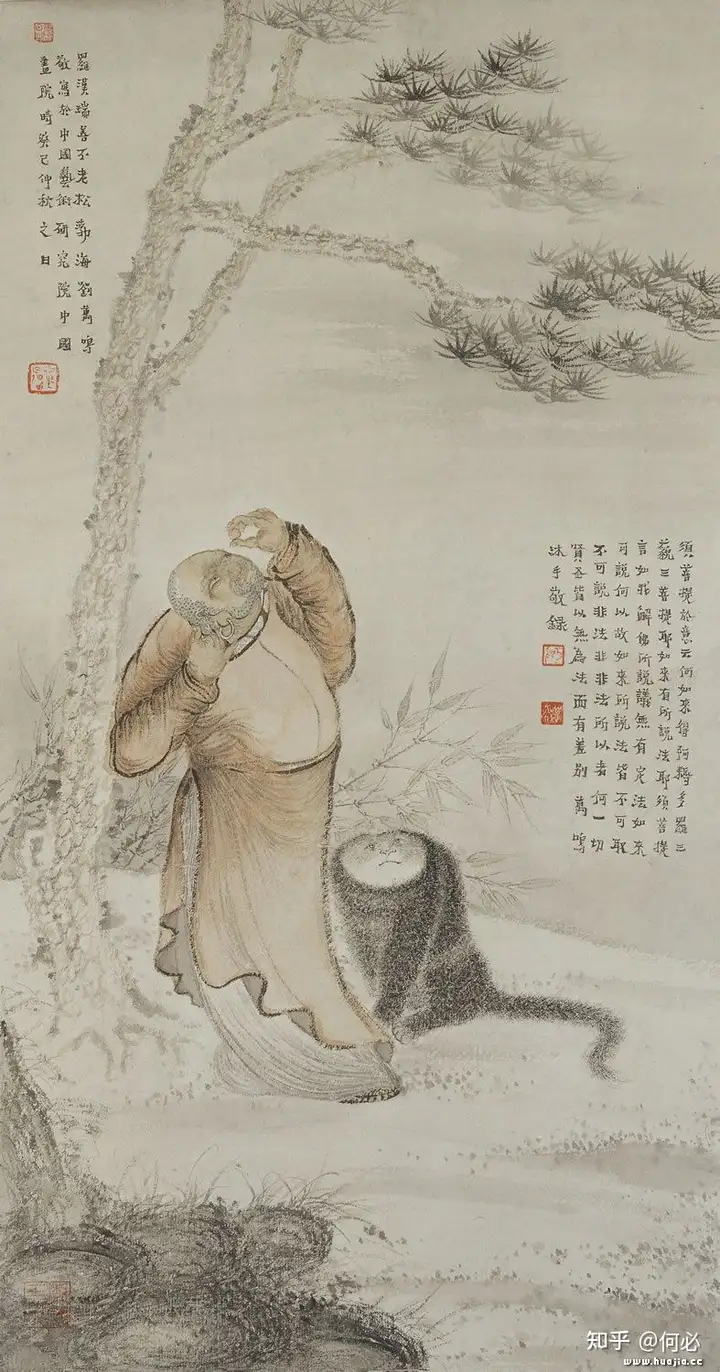 羅漢瑞善不老松勃海劉萬鳴
敬寫於中國藝術研究院中國
畫院時癸巳仲秋之日
須菩提於意云何如來得阿耨多羅三
藐三菩提耶如來有所說法耶須菩提
言如我解佛所說議無有定法如來
可說何以故如來所說法皆不可取
不可說非法非非法所以者何一切
賢圣皆以無為法而有差別 萬鳴
沐手敬錄
知乎 @何必
www.huajia.cc